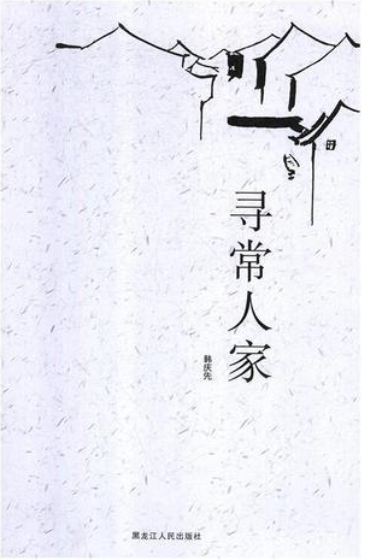 寻常人家
韩庆先
黑龙江人民出版社